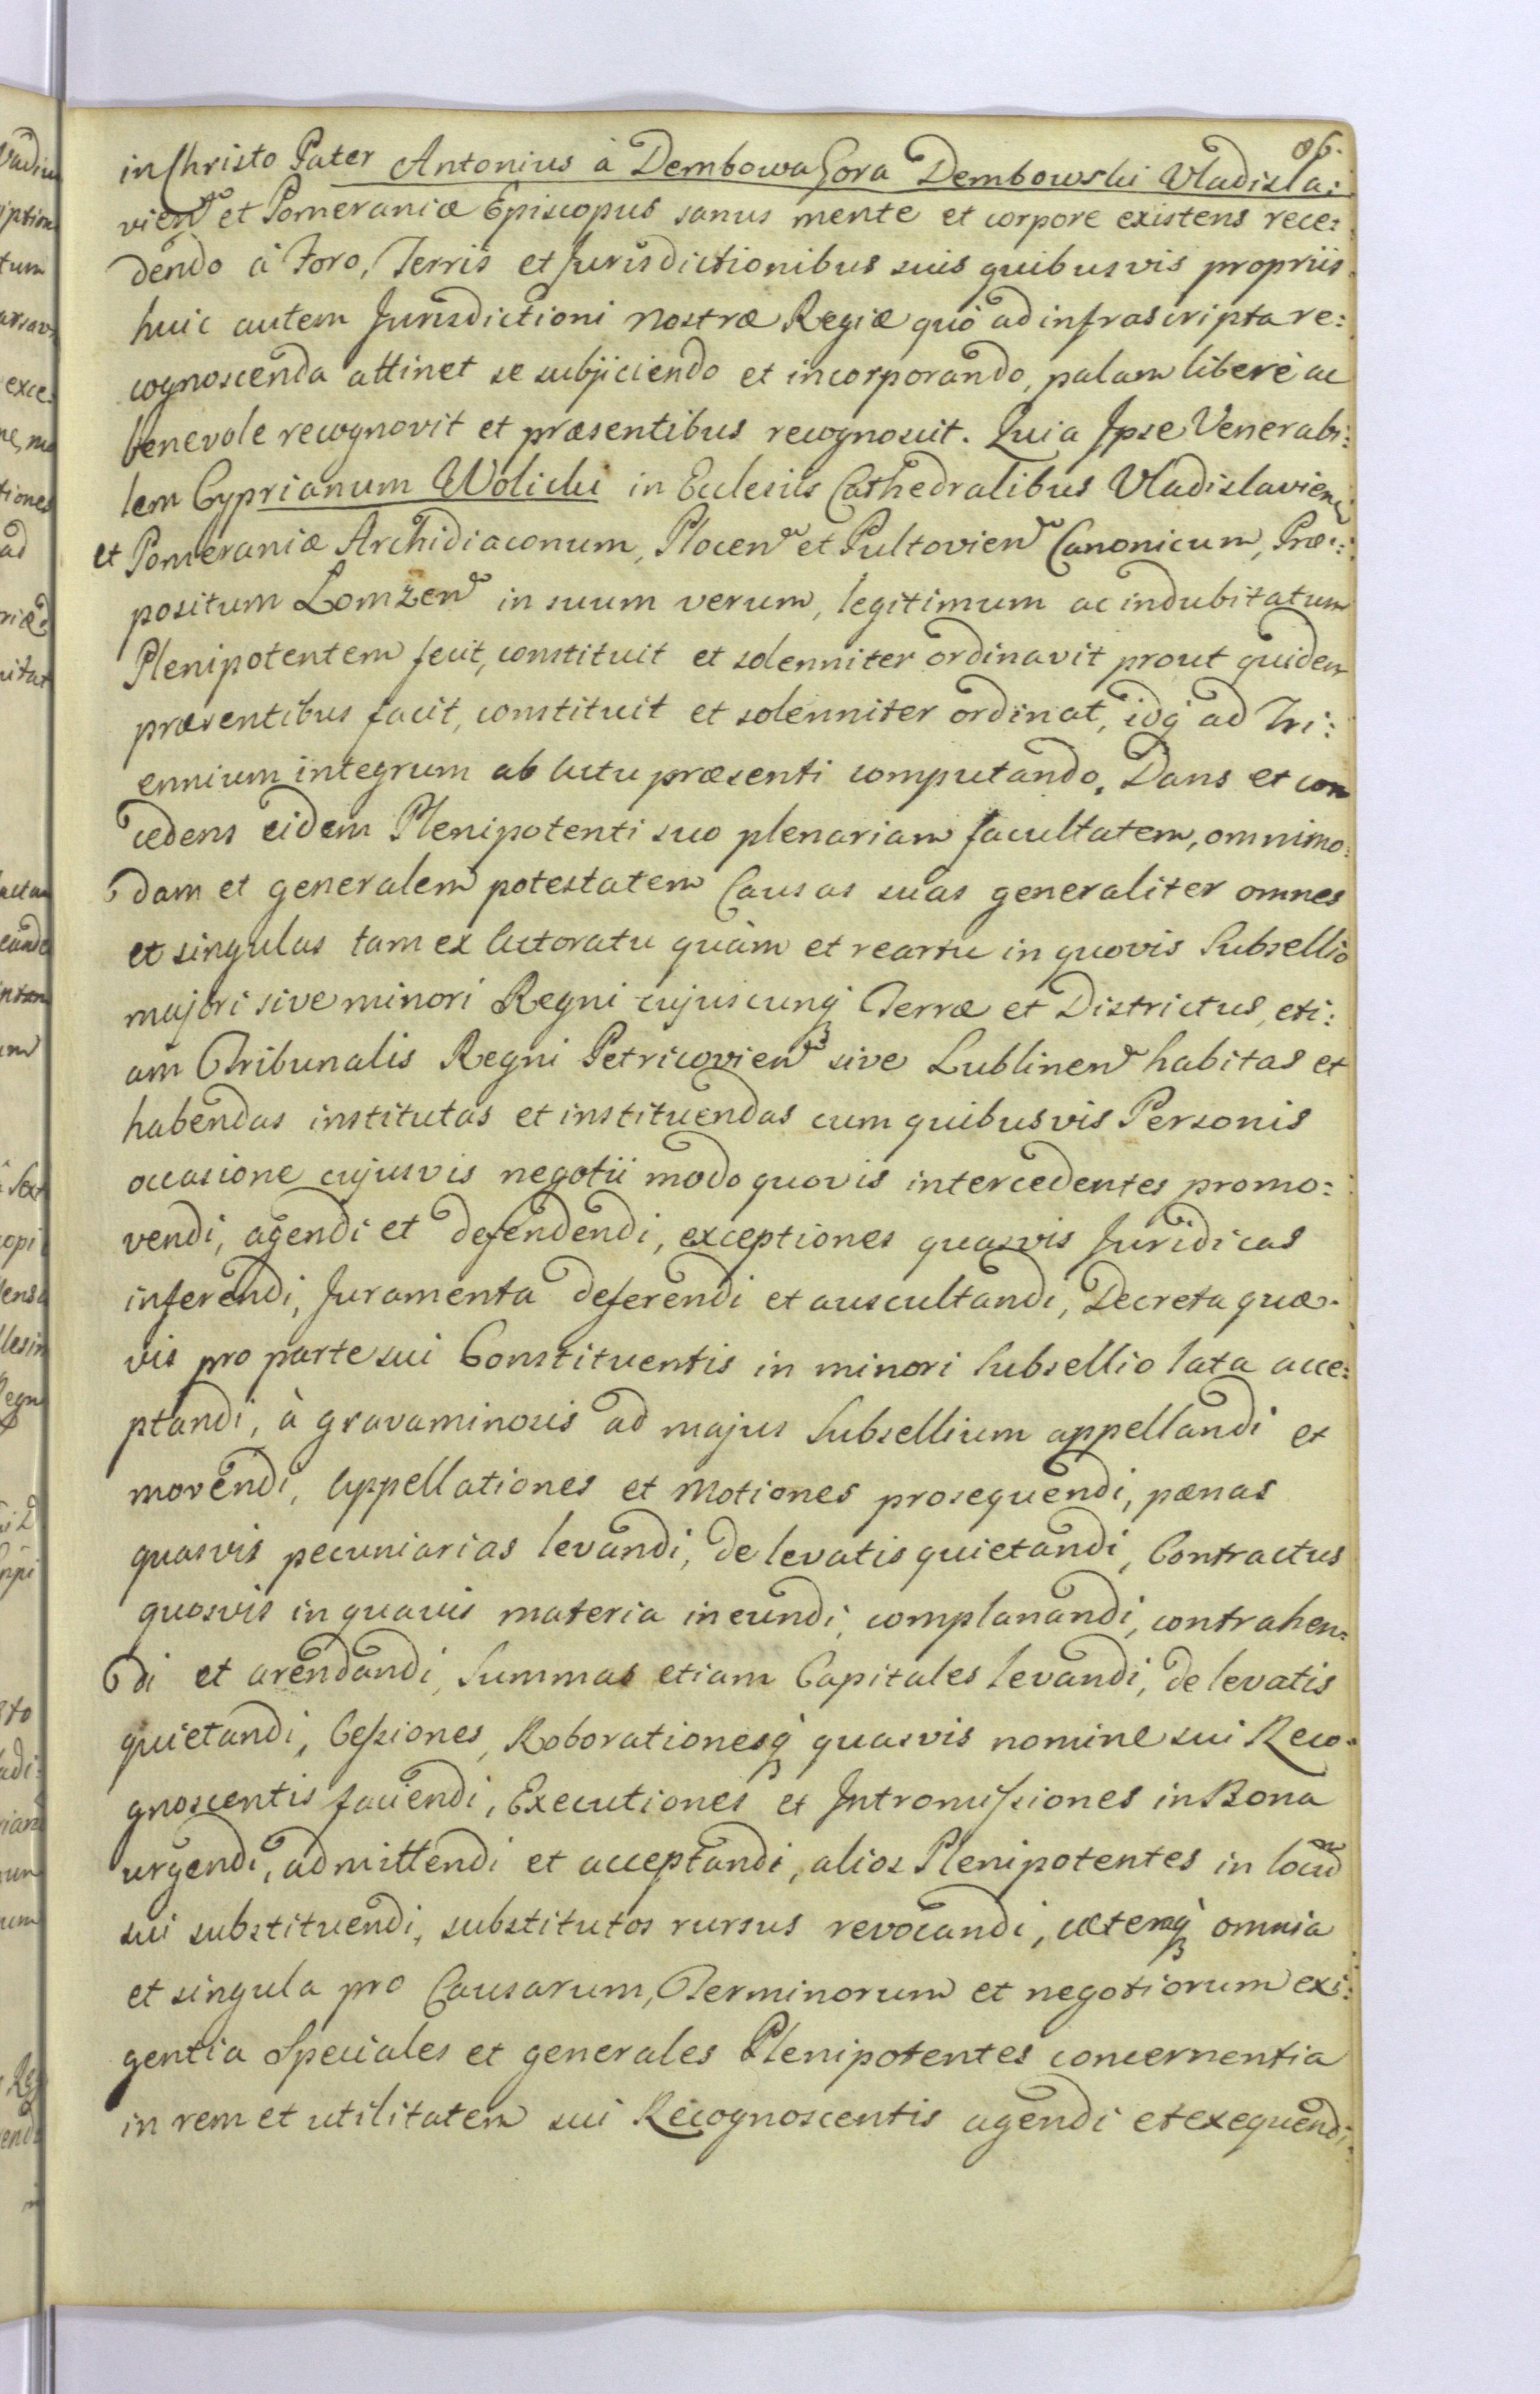 86.
in Christo Pater Antonius à Dembowa Gora Dembowski Vladisla:
vien et Pomeraniæ Episcopus sanus mente et corpore existens rece:
dendo à Foro, Terris et Jurisdictionibus suis quibusvis propriis
huic autem Jurisdictioni nostræ Regiæ quò ad infrascripta re:
cognoscenda attinet se subjiciendo et incorporando, palam liberè ac
benevole recognovit et præsentibus recognoscit. Quia Ipse Venerabi:
lem Cyprianum Wolicki in Ecclesiis Cathedralibus Vladislavien
et Pomeraniæ Archidiaconum, Plocen et Pultovien Canonicum, Præ:
positum Lomzen in suum verum, legitimum ac indubitatum
Plenipotentem fecit, constituit et solenniter ordinavit prout quidem
præsentibus facit, constituit et solenniter ordinat, idq ad Tri:
ennium integrum ab actu præsenti computando. Dans et con
cedens eidem Plenipotenti suo plenariam facultatem, omnimo:
dam et generalem potestatem Causas suas generaliter omnes
et singulas tam ex actoratu quàm et reatu in quovis Subsellio
majori sive minori Regni cujuscunq Terræ et Districtus, eti:
am Tribunalis Regni Petricovien sive Lublinen habitas et
habendas institutas et instituendas cum quibusvis Personis
occasione cujusvis negotii modo quovis intercedentes promo:
vendi, agendi et defendendi, exceptiones quasvis Juridicas
inferendi, Juramenta deferendi et auscultandi, Decreta quæ-
vis pro parte sui Constituentis in minori Subsellio lata acce:
ptandi, à gravaminosis ad majus Subsellium appellandi et
movendi, Appellationes et Motiones prosequendi, pænas
quasvis pecuniarias levandi, de levatis quietandi, Contractus
quosvis in quavis materia ineundi, complanandi, contrahen:
di et arendandi, Summas etiam Capitales levandi, de levatis
quietandi, Cessiones, Roborationesq quasvis nomine sui Reco:
gnoscentis faciendi, Executiones et Intromissiones in Bona
urgendi, admittendi et acceptandi, alios Plenipotentes in locum
sui substituendi, substitutos rursus revocandi, cæteraq omnia
et singula pro Causarum, Terminorum et negotiorum exi:
gentia Speciales et generales Plenipotentes concernentia
in rem et utilitatem sui Recognoscentis agendi et exequendi: